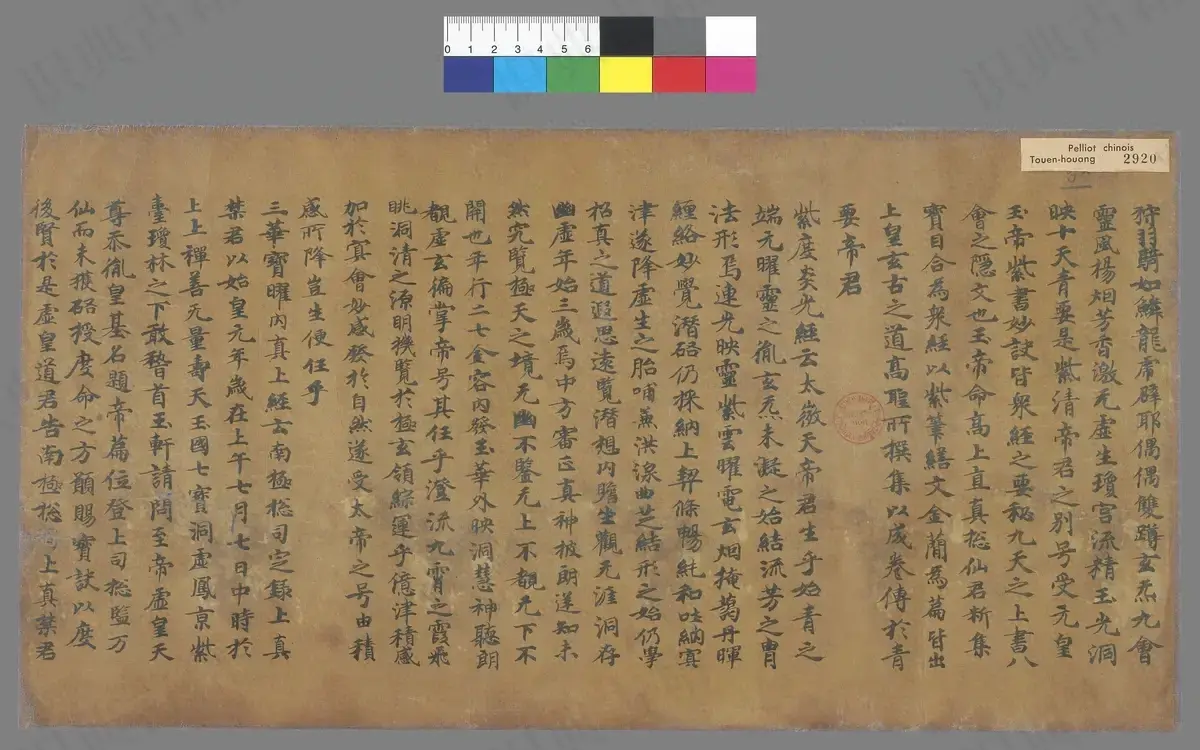 狩羽騎如鱗龍虎辟耶偶偶雙蹲玄炁九會
靈風楊烟芳香激无虛生瓊宮流精玉光洞
映十天青要是紫清帝君之別号受元皇
玉帝紫書妙訣皆眾經之要秘九天之上書八
會之隱文也玉帝命高上直真捴仙君料集
寶目合為眾經以紫筆繕文金蕳為篇皆出
上皇玄古之道髙聖所撰集以成卷傳於青
要帝君
紫度炎光經云太微天帝君生乎始青之
端元曜靈之胤玄炁未凝之始結流芳之胄
法形焉連光映靈紫雲曜電玄烟掩藹丹暉
纏絡妙覺潛硌仍採納上契條暢純和吐納冥
津遂降虛生之胎哺兼洪湶曲芝結形之始仍學
招真之道遐思遠覽潛想內瞻坐觀无涯洞存
幽虛年始三歲焉中方審正真神披朗逆知未
然究覽極天之境无幽不鑒无上不覩无下不
開也年行二七金容內發玉華外映洞慧神聽朗
覩虛玄徧掌帝号其任乎澄流九霄之霞飛
眺洞清之源明機覽於極玄領綜運乎億津積感
加於冥會妙感發於自然遂受太帝之号由積
感所降豈生便任乎
三華寶曜內真上經云南極捴司定錄上真
禁君以始皇元年歲在上午七月七日中時於
上上禪善无量壽天王國七寶洞虛鳳京紫
臺瓊林之下敢稽首玉軒請問至帝虛皇天
尊忝胤皇基名題帝篇位登上司捴監万
仙而未獲硌授度命之方願賜寶訣以度
後賢於是虛皇道君告南極捴司上真禁君
Pelliot chinois
Touen-houang 2920
0 1 2 3 4 5 6